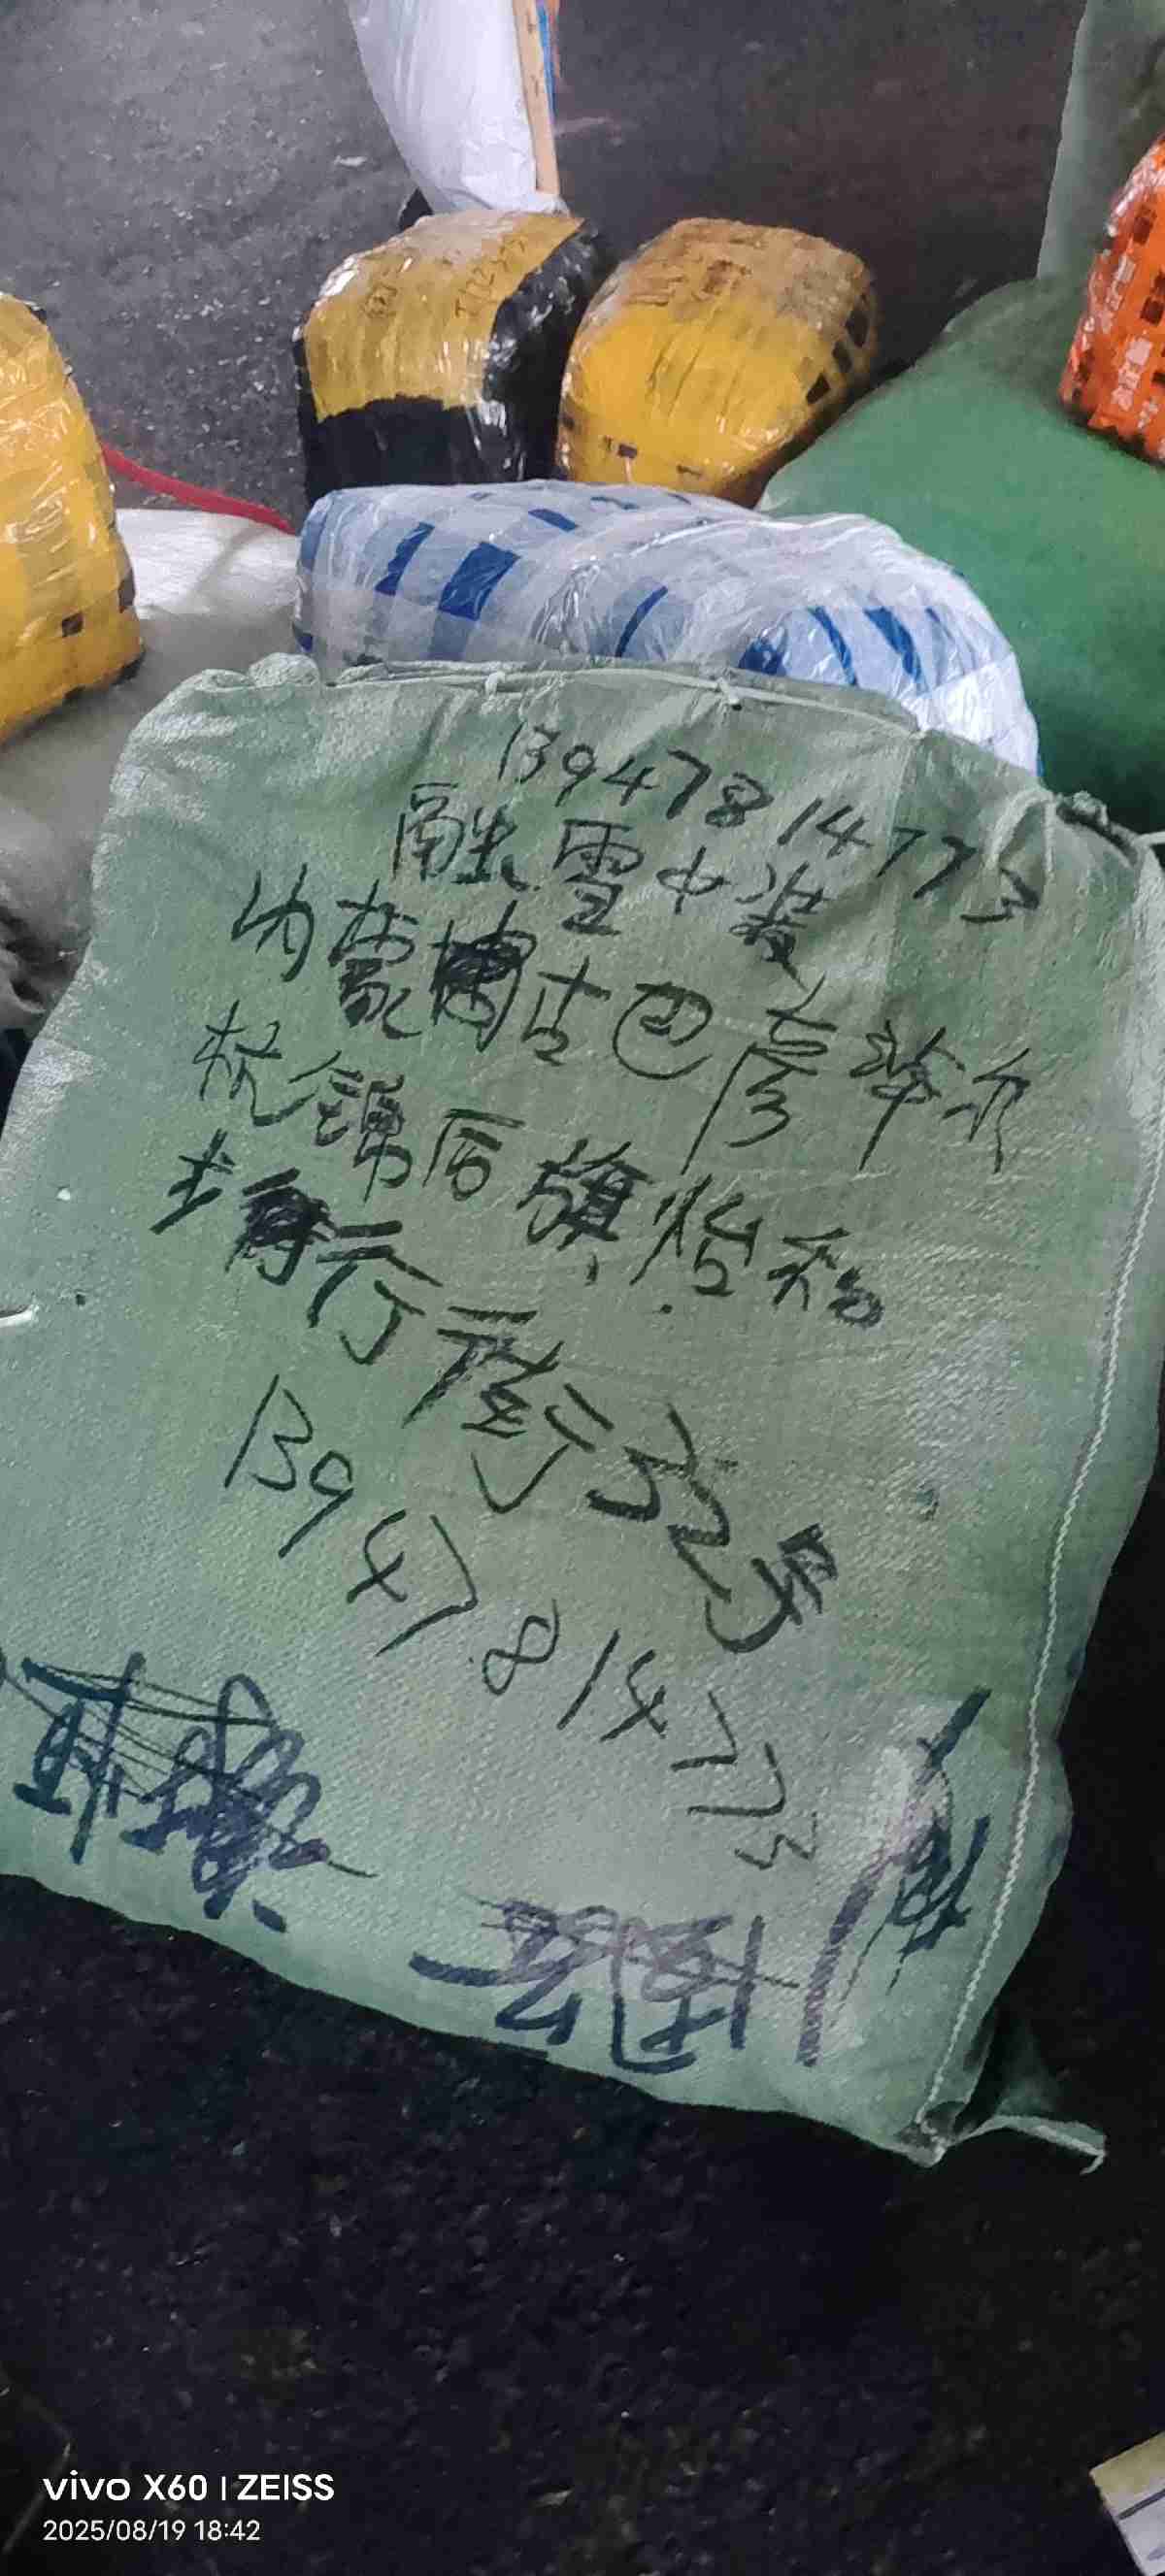 13947814773
融雪中裝
内蒙古巴彦淖尔
杭锦后旗怡和
步行街32号
13947814773
vivo X60 | ZEISS
2025/08/19 18:42